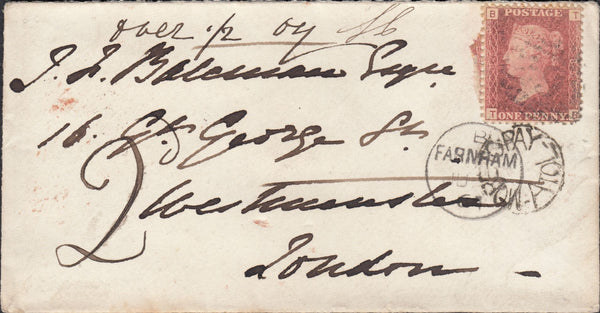 over 1/2 oz
B POSTAGE T
T ONE PENNY B
J. F. Bateman Esqre
16. Gt George St.
FARNHAM
2
Westminster
London